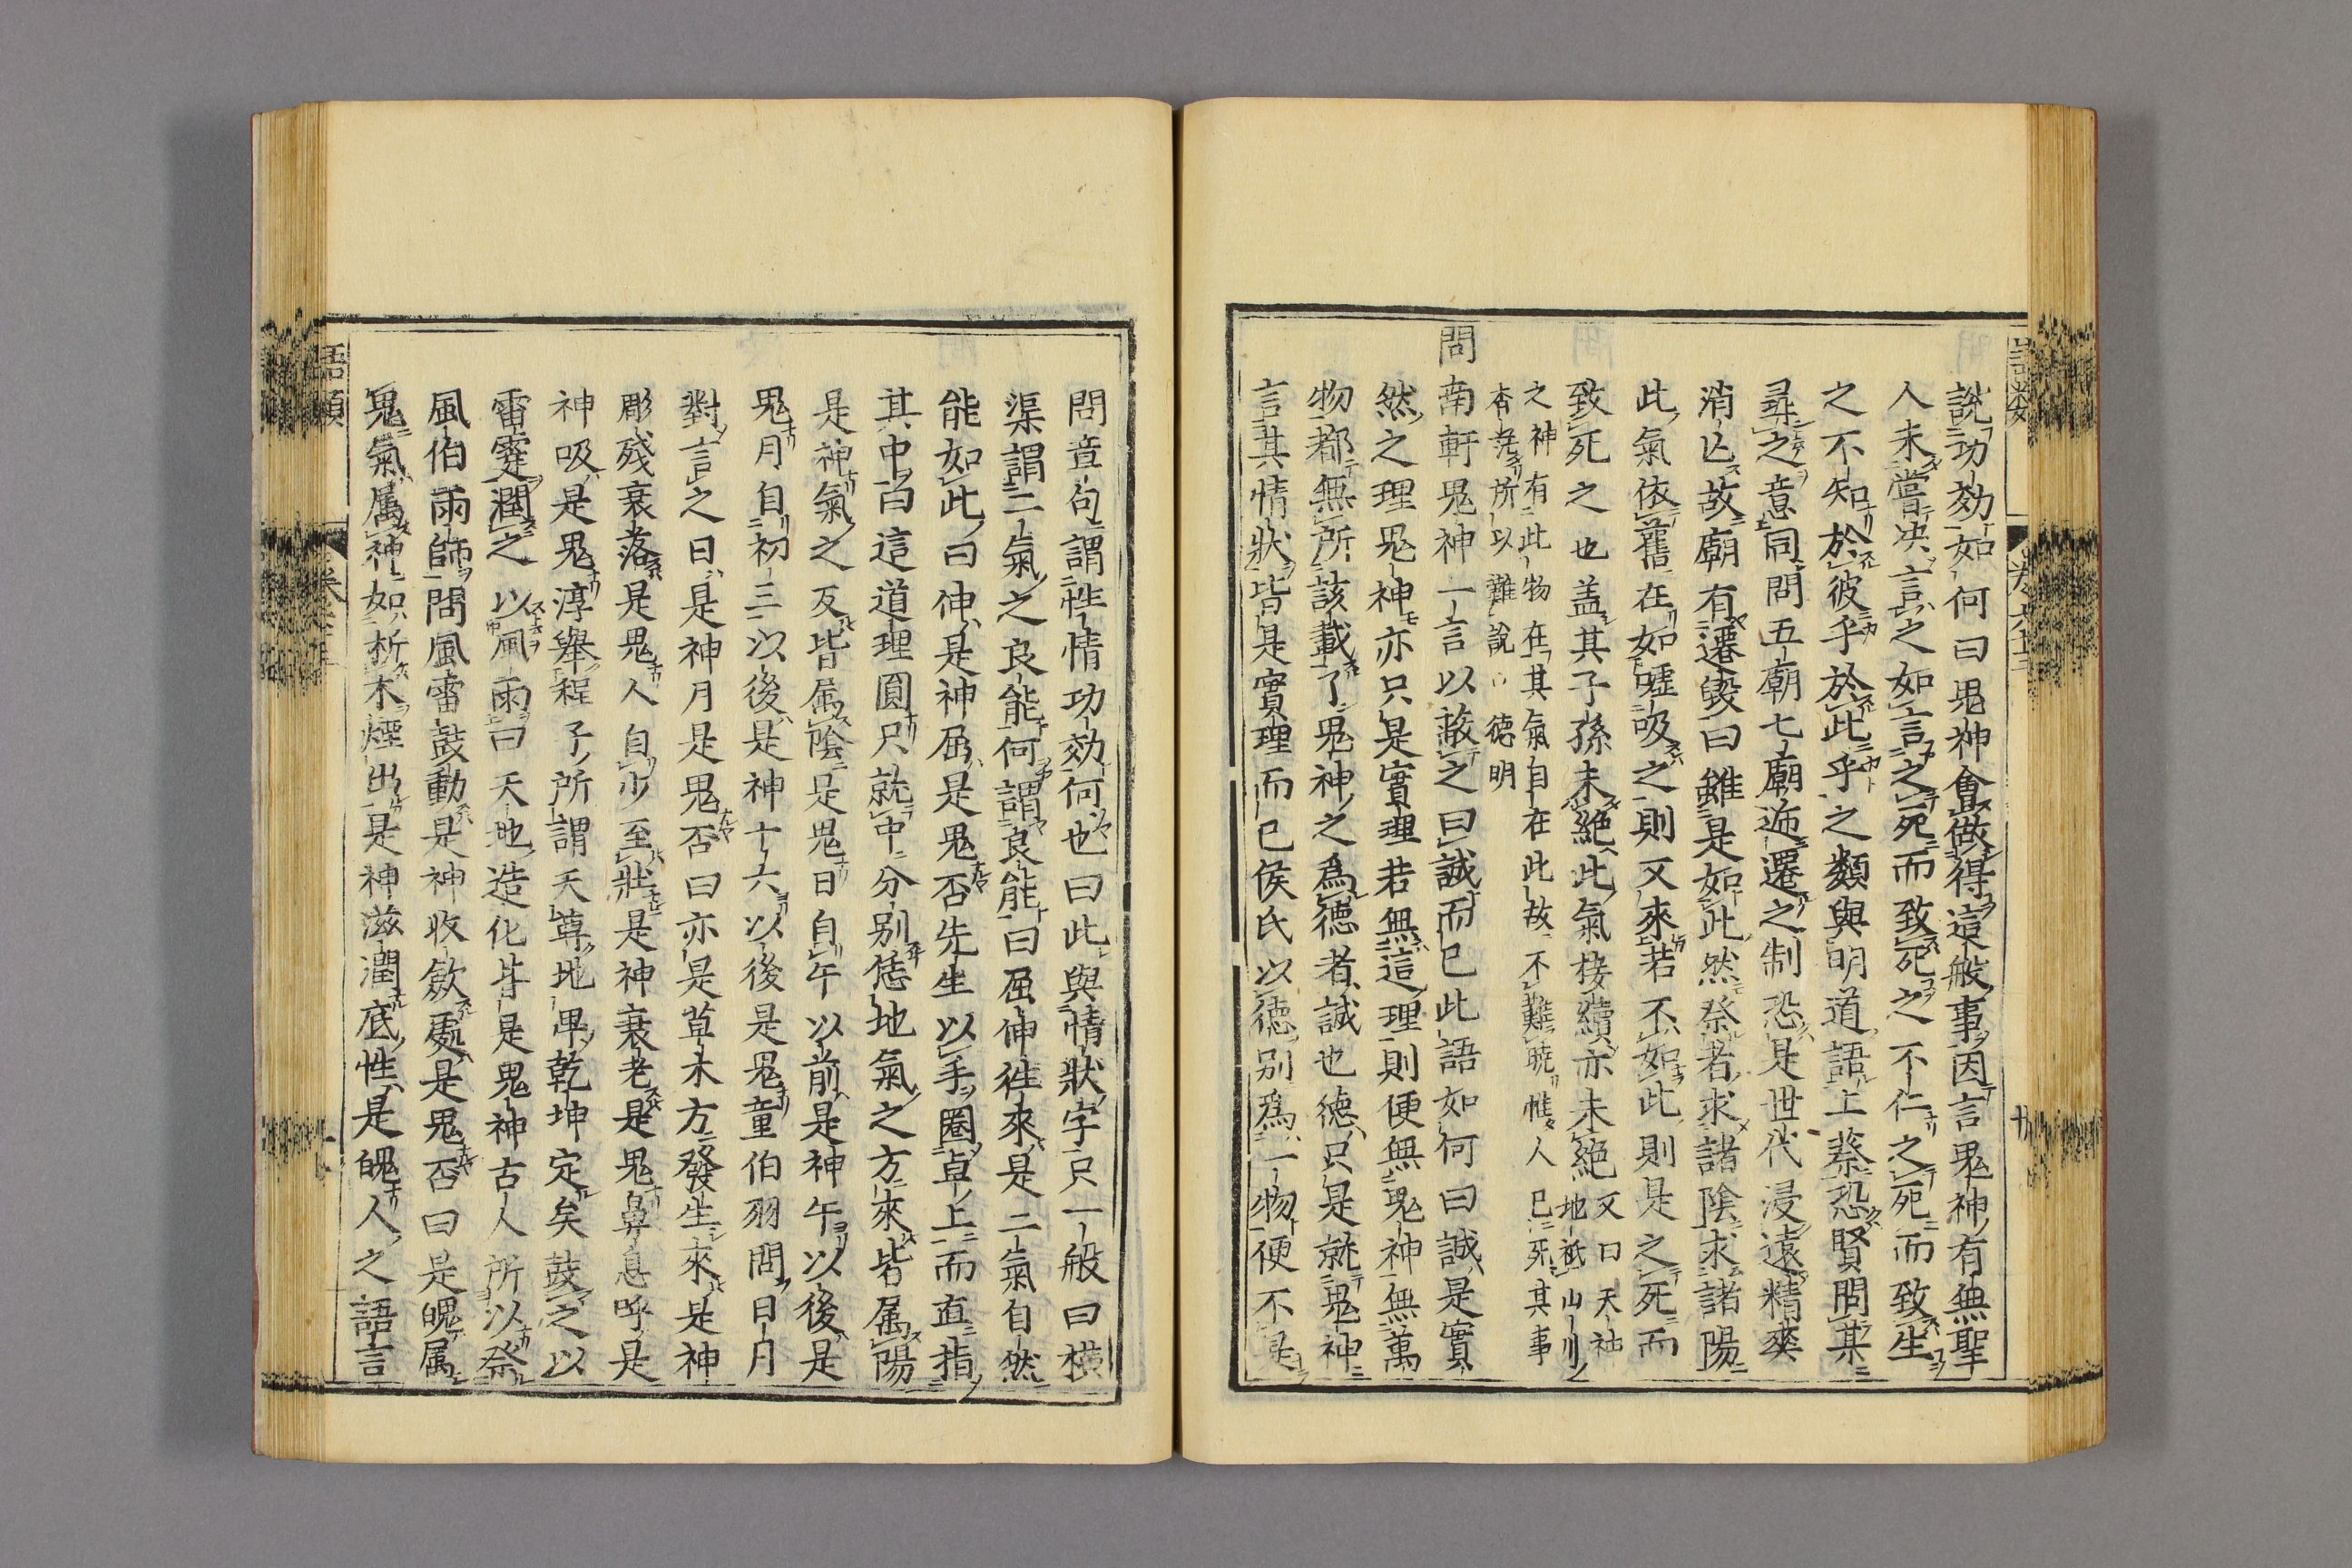 說功効如何曰鬼神會做得這般事因言鬼神有無聖
人未嘗決言之如言之死而致死之不仁之死而致生
之不知於彼乎於此乎之類與明道語上蔡恐賢問某
尋之意同問五廟七廟逓遷之制恐是世代浸遠精爽
消亾故廟有遷毀曰雖是如此然祭者求諸陰求諸陽
此氣依舊在如噓吸之則又來若不如此則是之死而
致死之也盖其子孫未絶此氣接續亦未絶又曰天神地祇山川
之神有此物在其氣自在此故不難曉惟人已死其事
杳茫所以難說德明
問南軒鬼神一言以蔽之曰誠而已此語如何曰誠是實
然之理鬼神亦只是實理若無這理則便無鬼神無萬
物都無所該載了鬼神之爲德者誠也德只是就鬼神
言其情狀皆是實理而已侯氏以德别爲一物便不是
語類
問章句謂性情功効何也曰此與情狀字只一般曰橫
渠謂二氣之良能何謂良能曰屈伸往來是二氣自然
能如此曰伸是神屈是鬼否先生以手圈卓上而直指
其中曰這道理圓只就中分别恁地氣之方來皆属陽
是神氣之反皆属陰是鬼日自午以前是神午以後是
鬼月自初三以後是神十六以後是鬼童伯羽問日月
對言之日是神月是鬼否曰亦是草木方發生來是神
彫殘衰落是鬼人自少至壯是神衰老是鬼鼻息呼是
神吸是鬼淳舉程子所謂天尊地卑乾坤定矣鼓之以
雷霆潤之以風雨曰天地造化皆是鬼神古人所以祭
風伯雨師問風雷鼓動是神收歛處是鬼否曰是魄属
鬼氣属神如析木煙出是神滋潤底性是魄人之語言
語類